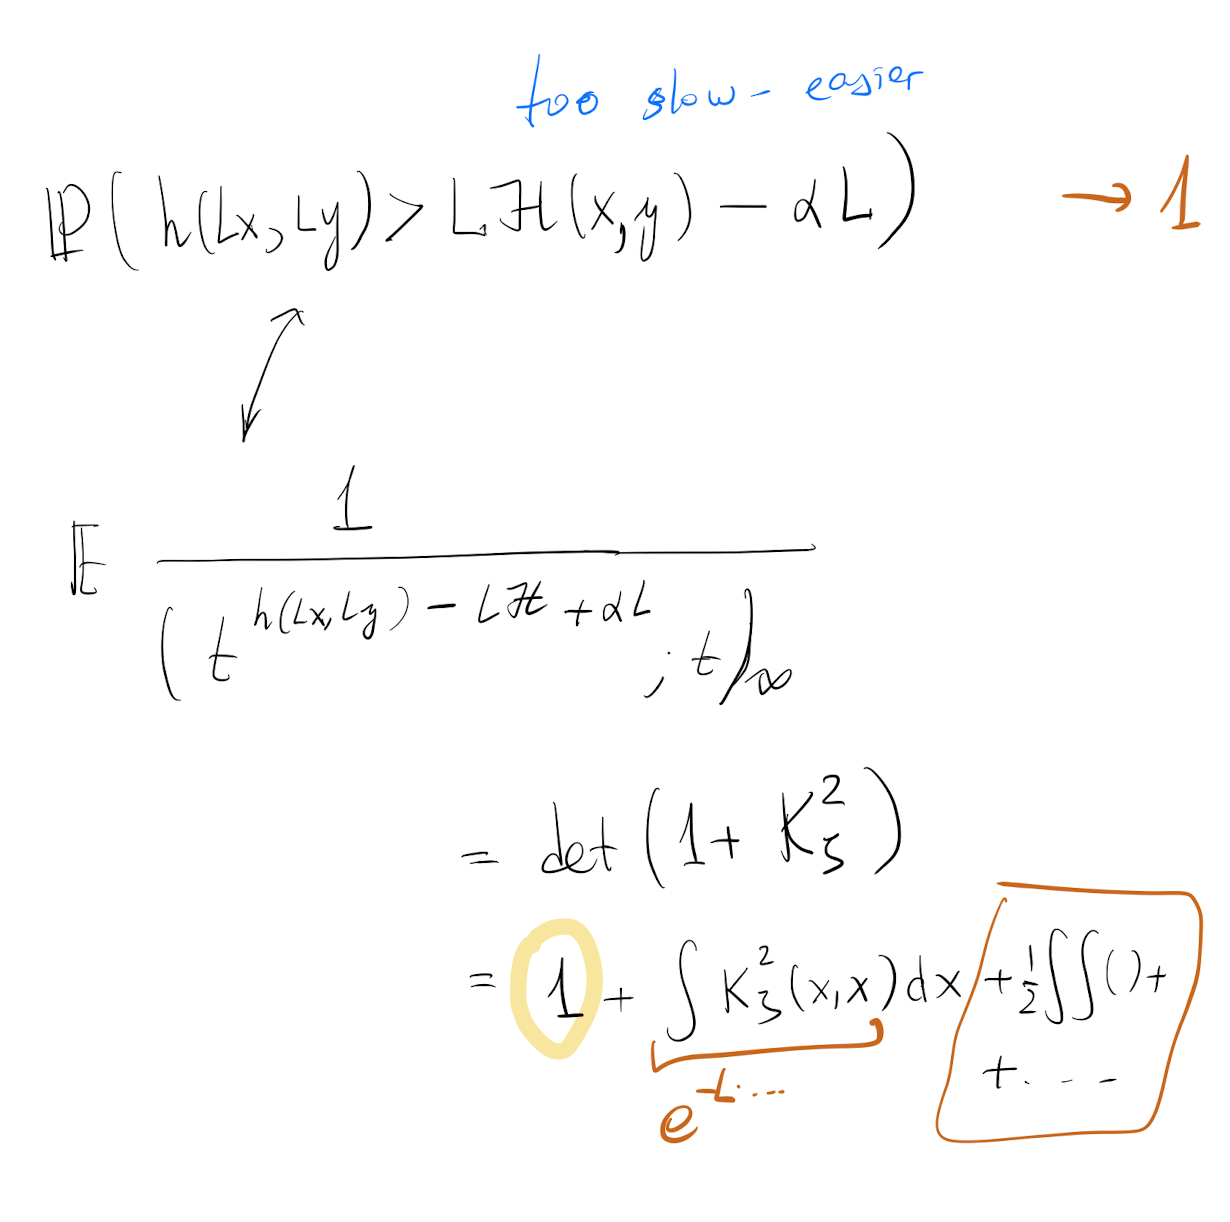 too slow - easier
ℙ( h(Lx, Ly) > Lℋ(x,y) − αL ) → 1
𝔼 1 / ( t^{h(Lx, Ly) − Lℋ + αL} ; t )_∞
= det ( 1 + K_ζ^2 )
= 1 + ∫ K_ζ^2 (x,x) dx + ½ ∫∫ ( ) +
+ . - - -
e^{-L· ...}